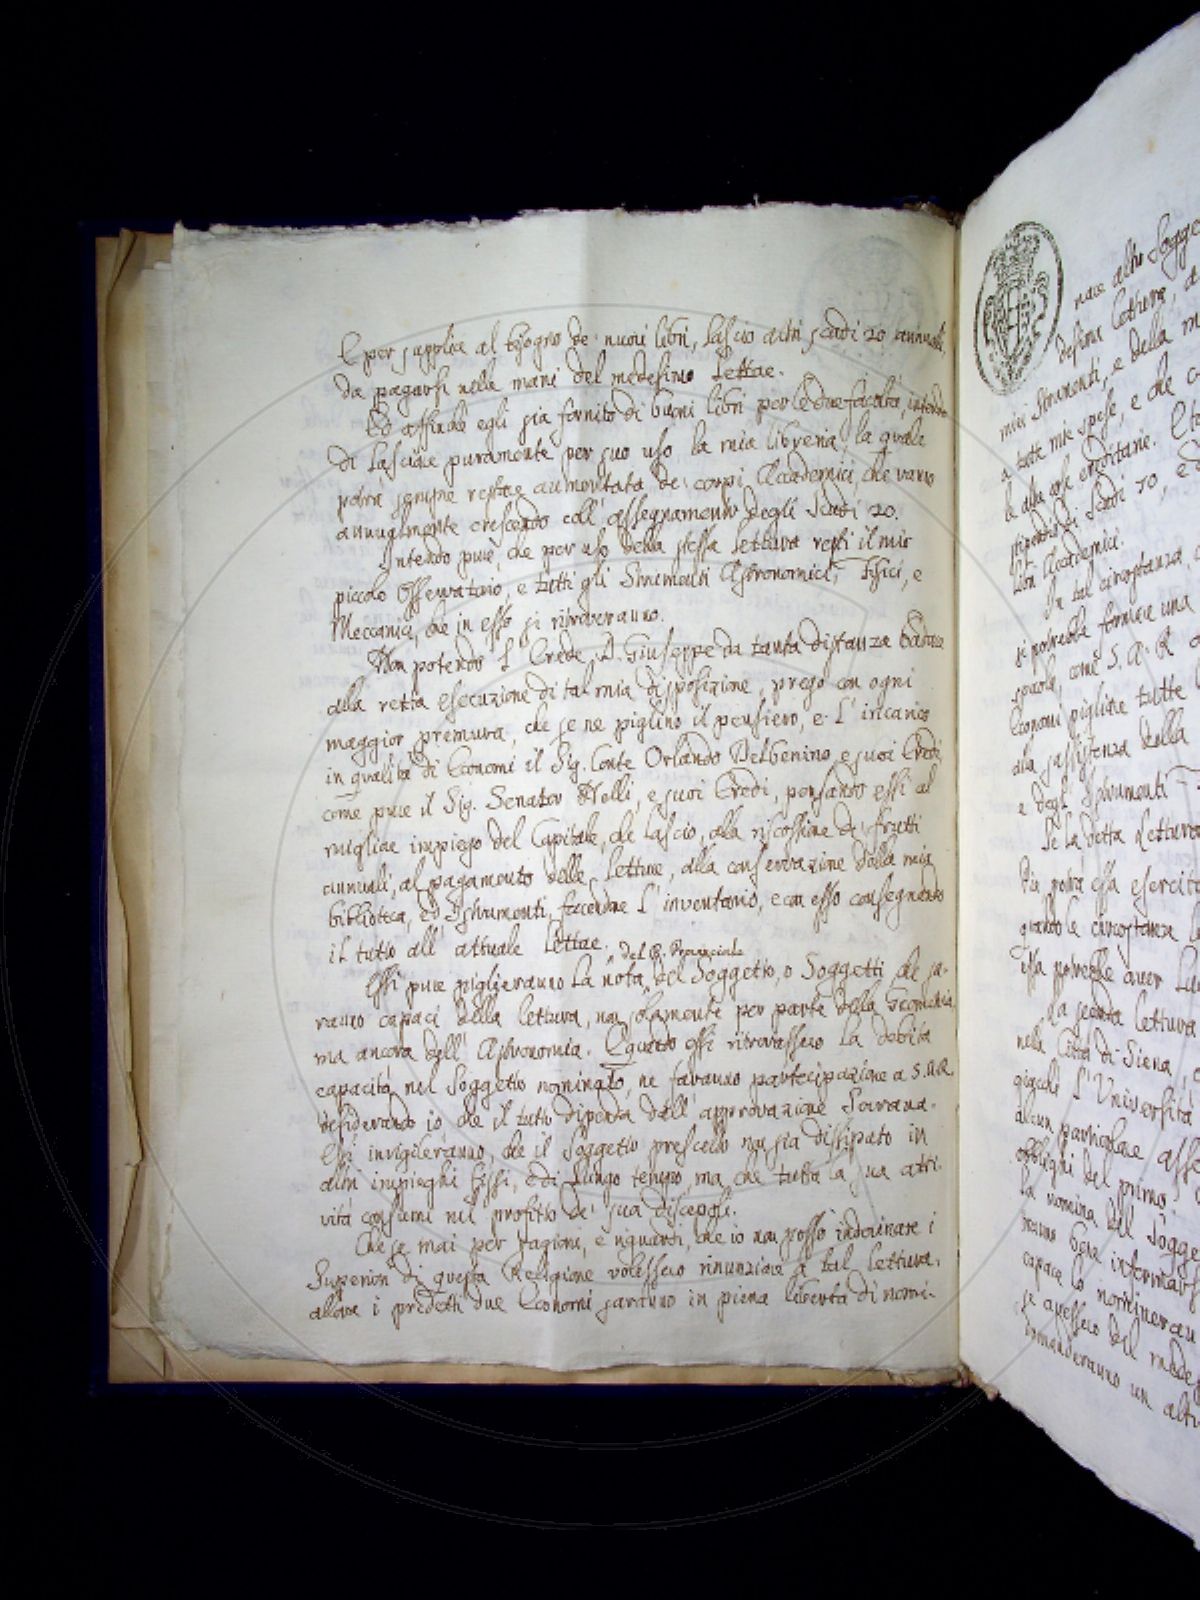 E per supplire al bisogno de' nuovi libri, lascio altri scudi 20 annuali,
da pagarsi nelle mani del medesimo Lettore.
Ed affinché egli sia fornito di buoni libri per le due facoltà, intendo
di lasciare puramente per suo uso la mia libreria, la quale
potrà sempre restare aumentata de' corpi Accademici, che vanno
annualmente crescendo coll' assegnamento degli Scudi 20.
Intendo pure, che per uso della stessa lettura resti il mio
piccolo Osservatorio, e tutti gli Strumenti Astronomici, Fisici, e
Meccanici, che in esso si ritroveranno.
Non potendo l' Erede P. Giuseppe da tanta distanza badare
alla retta esecuzione di tal mia disposizione, prego con ogni
maggior premura, che se ne piglino il pensiero, e l' incarico
in qualità di Economi il Sig. Conte Orlando Delbenino, e suoi Eredi,
come pure il Sig. Senator Nelli, e suoi Eredi, pensando essi al
migliore impiego del Capitale, che lascio, alla riscossione de' frutti
annuali, al pagamento delle Letture, alla conservazione della mia
biblioteca, ed Istrumenti, facendone l' inventario, e con esso consegnando
il tutto all' attuale Lettore.
del P. Provinciale
Essi pure piglieranno la nota del Soggetto, o Soggetti che sa-
ranno capaci della lettura, non solamente per parte della Geometria,
ma ancora dell' Astronomia. E quando essi ritrovassero la debita
capacità nel Soggetto nominato, ne faranno partecipazione a S.A.R.
desiderando io che il tutto dipenda dall' approvazione Sovrana.
Essi invigileranno, che il Soggetto prescelto non sia dissipato in
altri impieghi fissi, e di lungo tempo, ma che tutta la sua atti-
vità consumi nel profitto de' suoi discepoli.
Che se mai per ragioni, e riguardi, che io non posso indovinare i
Superiori di questa Religione volessero rinunziare a tal lettura,
allora i predetti due Economi saranno in piena libertà di nomi-
nare altro Sogge
desima lettura,
miei Strumenti, e della m
a tutte mie spese, e che
le altre cose ereditarie.
stipendio di Scudi 70, e
libri Accademici.
In tal circostanza,
si potrebbe formare una
scuola, come S. A. R.
Economi pigliare tutte
alla sussistenza della
e degl' Istrumenti
Se la detta Lettura
Pia potrà essa esercita
quando le circostanze
essa potrebbe aver
La seconda lettura
nella Città di Siena,
giacchè l' Università
alcun particolare
obblighi del primo.
la nomina del Sogge
ranno bene informarsi
capace lo nomineran
se avessero del
domanderanno un altro